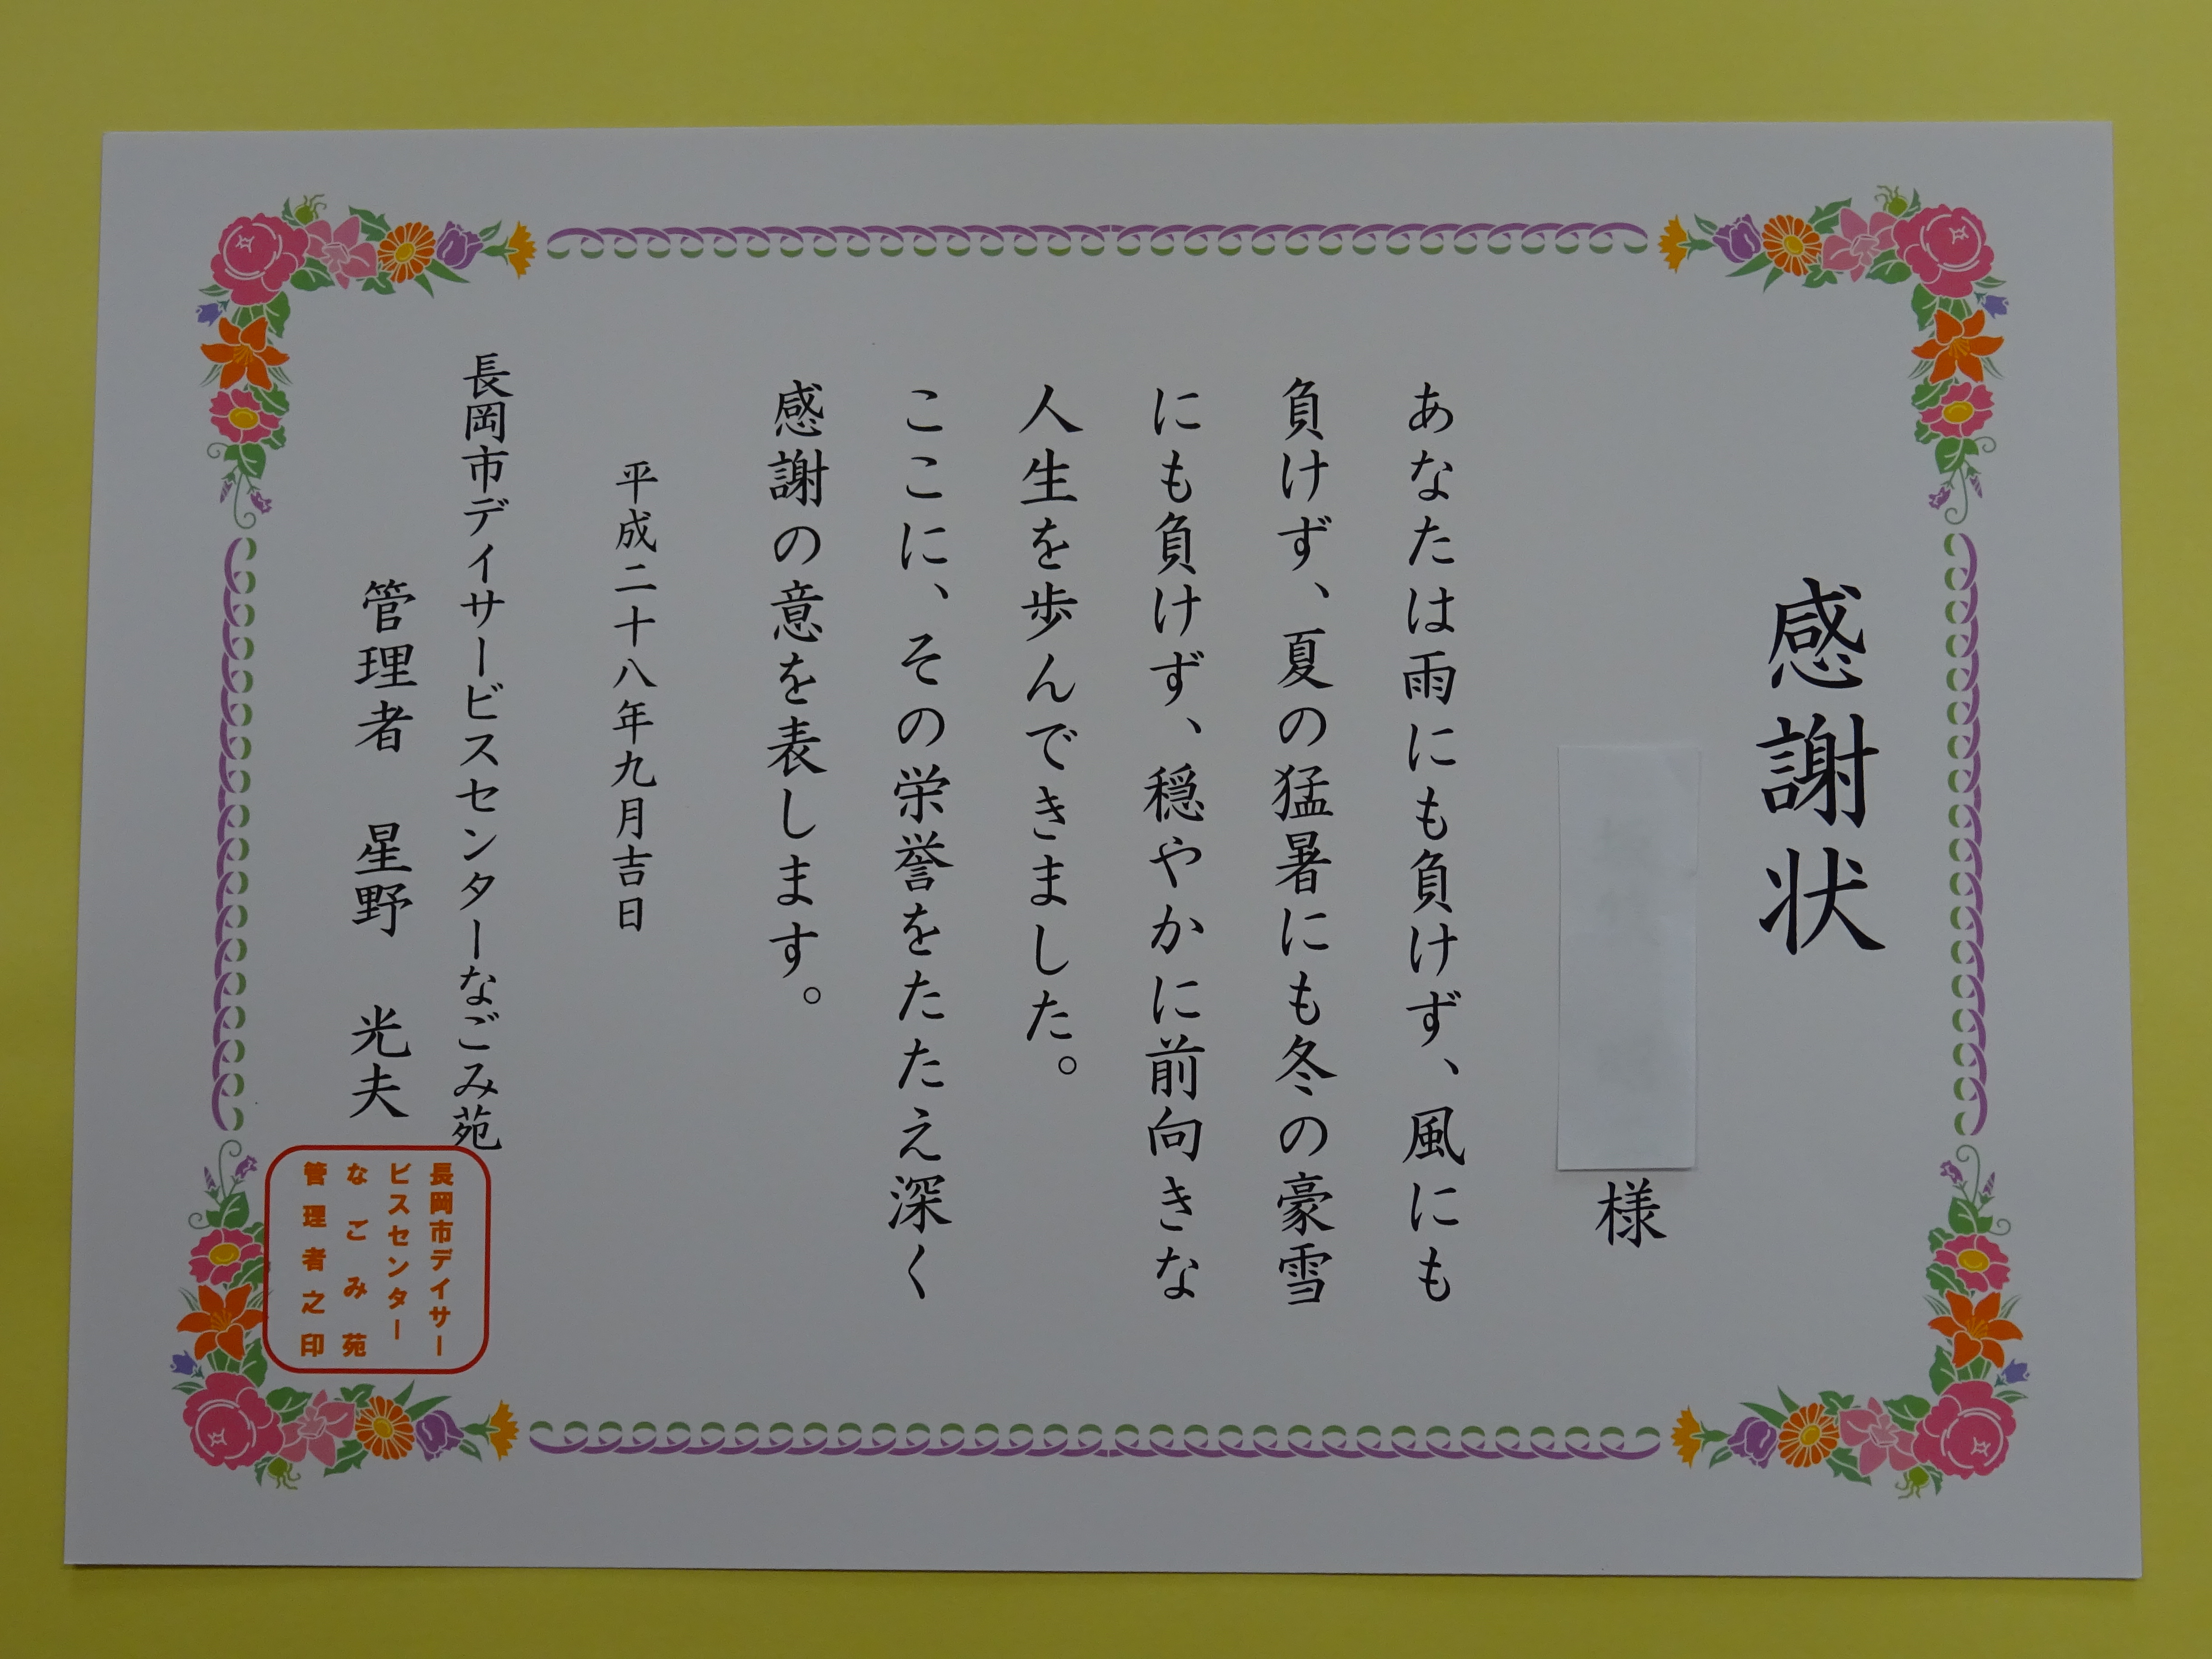 感謝状
様
あなたは雨にも負けず、風にも
負けず、夏の猛暑にも冬の豪雪
にも負けず、穏やかに前向きな
人生を歩んできました。
ここに、その栄誉をたたえ深く
感謝の意を表します。
平成二十八年九月吉日
長岡市デイサービスセンターなごみ苑
管理者 星野 光夫
長岡市デイサー
ビスセンター
なごみ苑
管理者之印